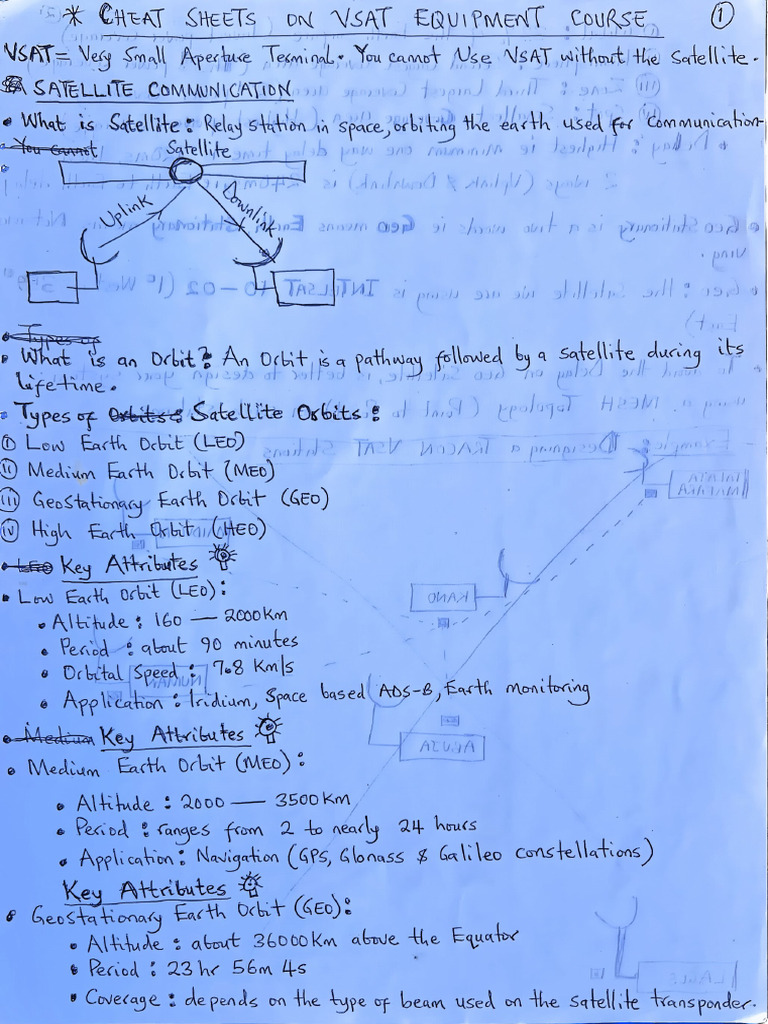 * CHEAT SHEETS ON VSAT EQUIPMENT COURSE ①
VSAT = Very Small Aperture Terminal. You cannot Use VSAT without the Satellite.
SATELLITE COMMUNICATION
• What is Satellite: Relay station in space, orbiting the earth used for Communication
You Cannot
Satellite
Uplink
Downlink
Types of
• What is an Orbit? An Orbit, is a pathway followed by a satellite during its
lifetime.
• Types of Orbits: Satellite Orbits:
(i) Low Earth Orbit (LEO)
(ii) Medium Earth Orbit (MEO)
(iii) GeoStationary Earth Orbit (GEO)
(iv) High Earth Orbit (HEO)
LEO Key Attributes
• Low Earth Orbit (LEO):
• Altitude: 160 — 2000Km
• Period: about 90 minutes
• Orbital Speed: 7.8 Km/s
• Application: Iridium, Space based ADS-B, Earth monitoring
• Medium Key Attributes
• Medium Earth Orbit (MEO):
• Altitude: 2000 — 3500Km
• Period: ranges from 2 to nearly 24 hours
• Application: Navigation (GPS, Glonass & Galileo constellations)
Key Attributes
• Geostationary Earth Orbit (GEO):
• Altitude: about 36000Km above the Equator
• Period: 23hr 56m 4s
• Coverage: depends on the type of beam used on the satellite transponder.